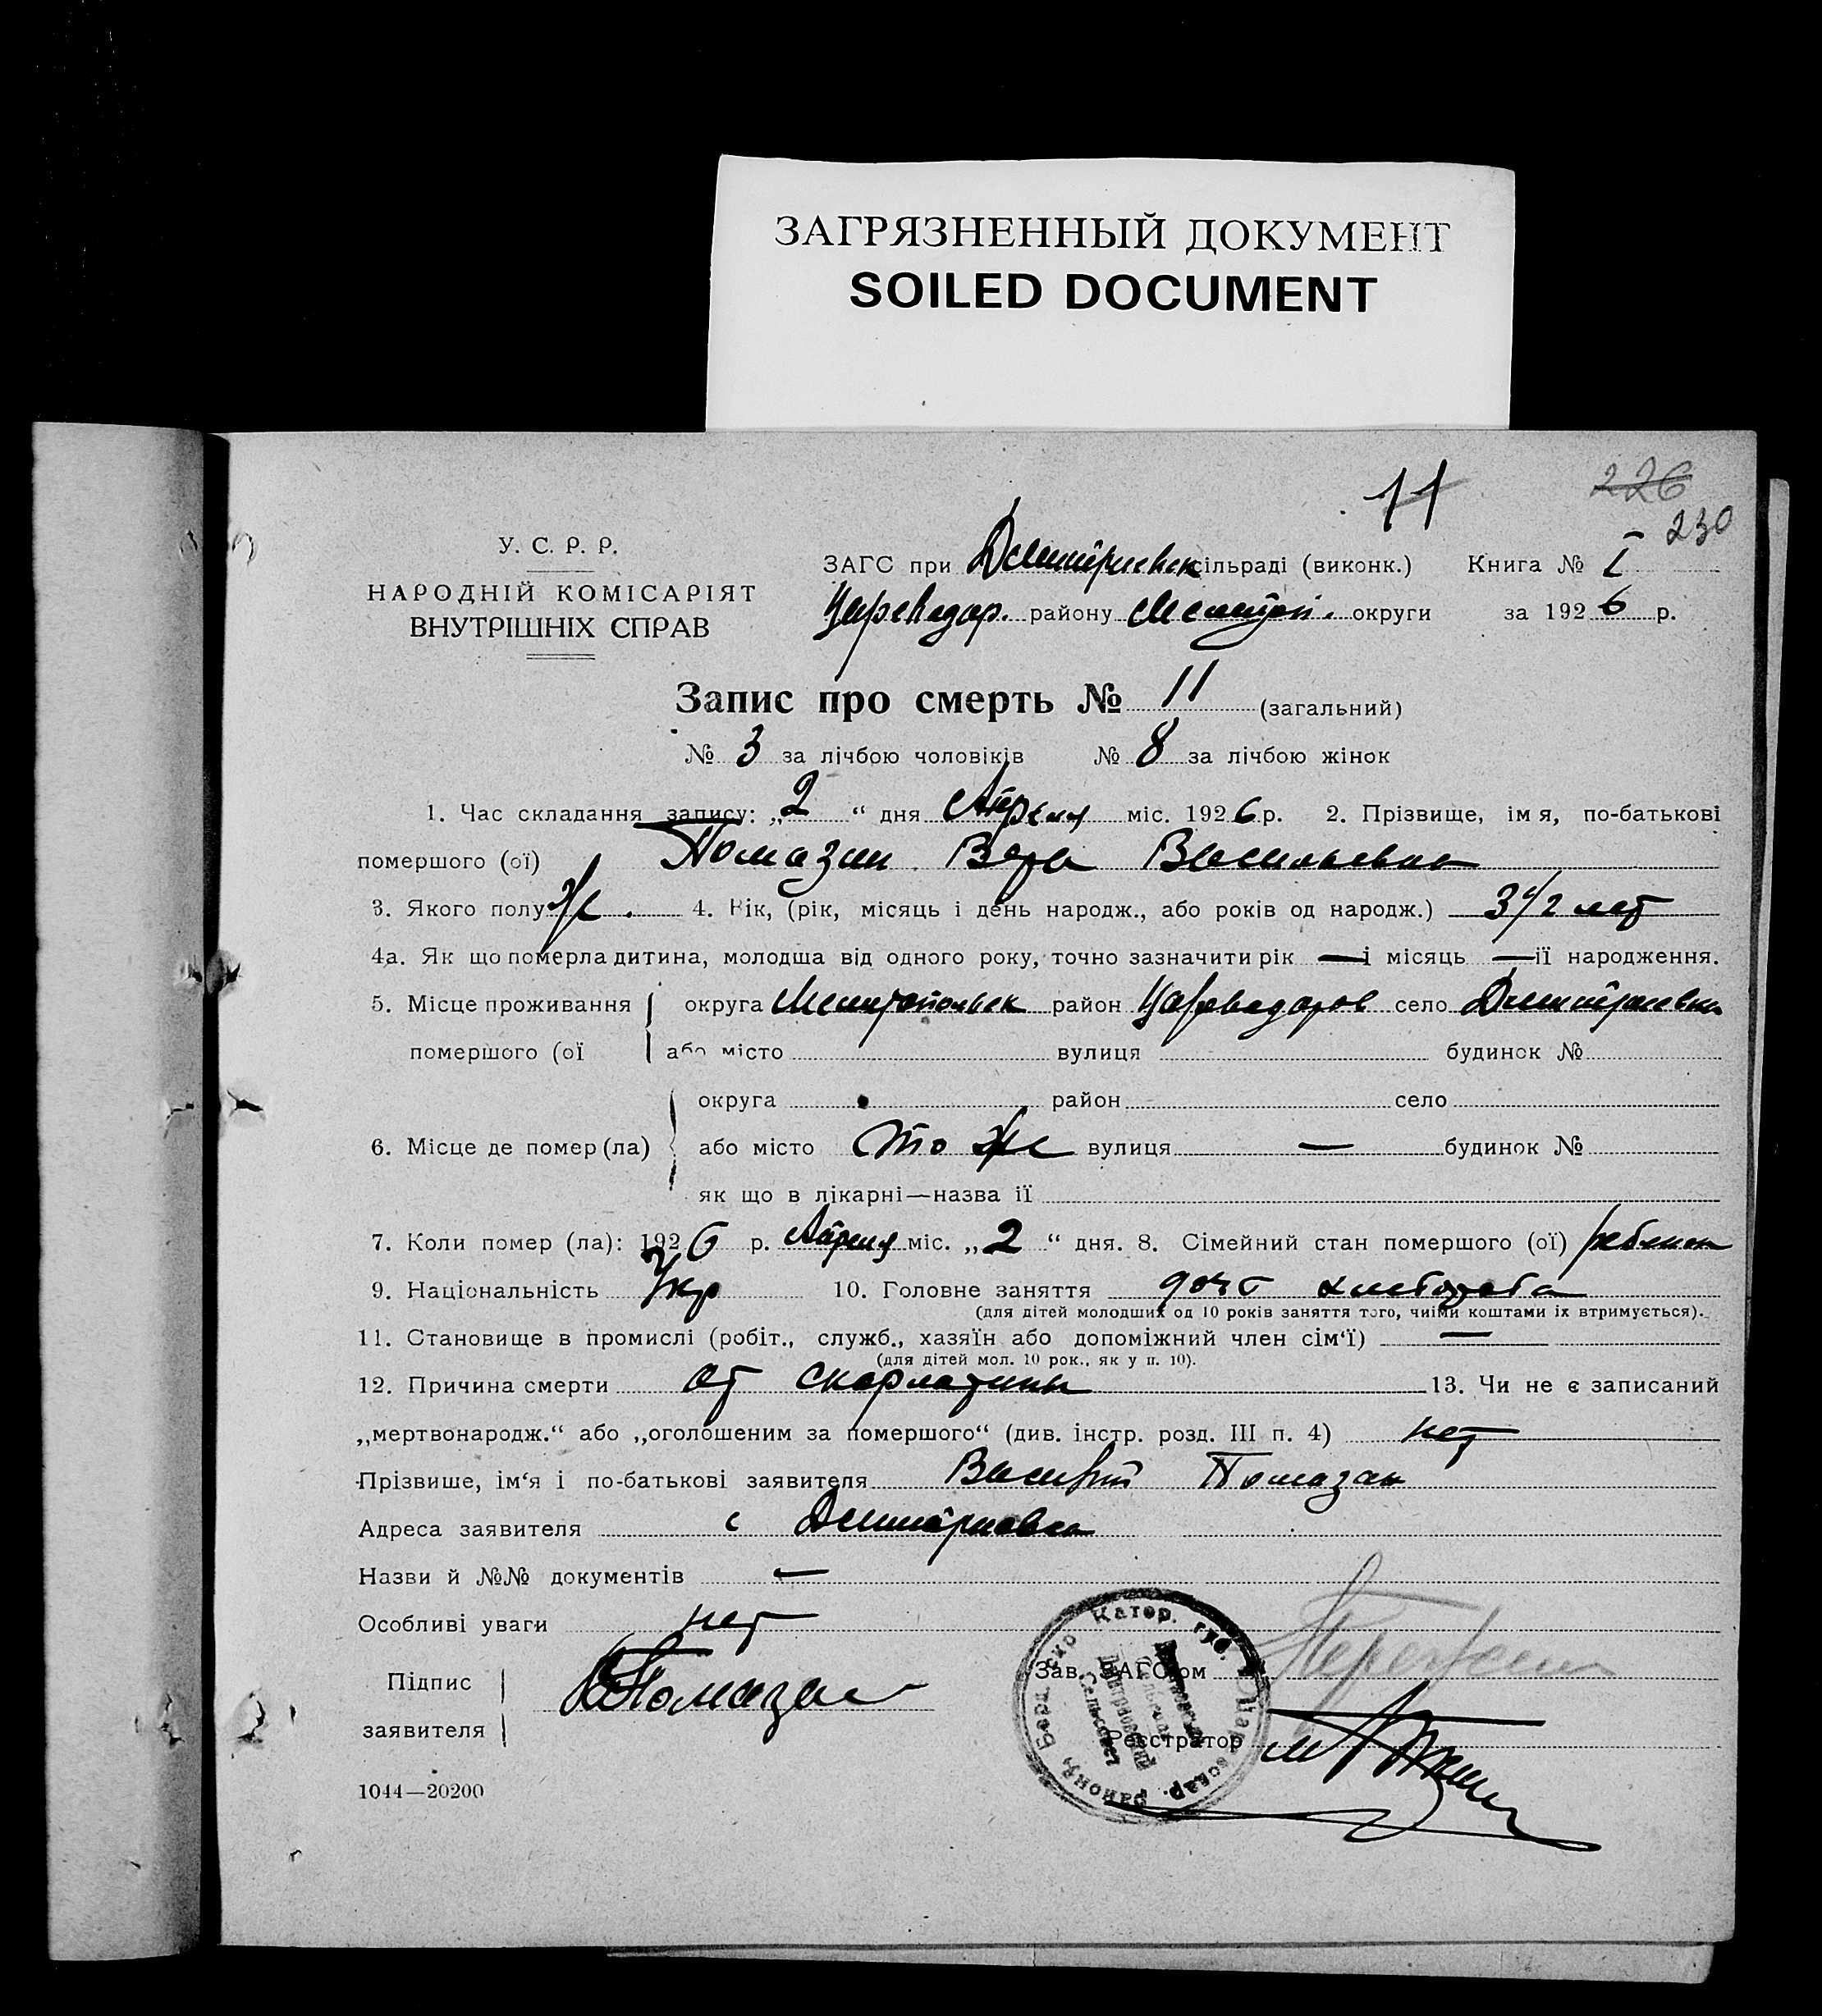 ЗАГРЯЗНЕННЫЙ ДОКУМЕНТ
SOILED DOCUMENT
11
226
230
У. С. Р. Р.
НАРОДНІЙ КОМІСАРІЯТ
ВНУТРІШНІХ СПРАВ
ЗАГС при Дмитриевск сільраді (виконк.) Книга № I
Царевадар. району Мелитоп. округи за 1926 р.
Запис про смерть № 11 (загальний)
№ 3 за лічбою чоловіків № 8 за лічбою жінок
1. Час складання запису: „2“ дня Апреля міс. 1926 р. 2. Прізвище, імя, по-батькові
помершого (ої) Помазан Вера Васильевна
3. Якого полу Ж. 4. Рік, (рік, місяць і день народж., або років од народж.) 3 1/2 лет
4а. Як що померла дитина, молодша від одного року, точно зазначити рік — і місяць — ії народження.
5. Місце проживання округа Мелитопольск район Царевадаров село Дмитриевка
помершого (ої або місто вулиця будинок №
округа район село
6. Місце де помер (ла) або місто то же вулиця — будинок №
як що в лікарні—назва ії
7. Коли помер (ла): 1926 р. Апреля міс. „2“ дня. 8. Сімейний стан помершого (ої) ребенок
9. Національність Укр 10. Головне заняття дочь хлебороба
(для дітей молодших од 10 років заняття того, чиїми коштами іх втримується).
11. Становище в промислі (робіт., служб., хазяїн або допоміжний член сім‘ї) —
(для дітей мол. 10 рок., як у п. 10).
12. Причина смерти от скарлатины 13. Чи не є записаний
„мертвонародж.“ або „оголошеним за помершого“ (див. інстр. розд. III п. 4) нет
Прізвише, ім‘я і по-батькові заявителя Василий Помазан
Адреса заявителя с Дмитриевка
Назви й №№ документів —
Особливі уваги нет
Підпис
заявителя
В Помазан
Зав. ЗАГС‘ом
Реєстратор
Катер. губ. Царевовар. району, Берд. окр
Дмитровский
Сельсовет
1044—20200